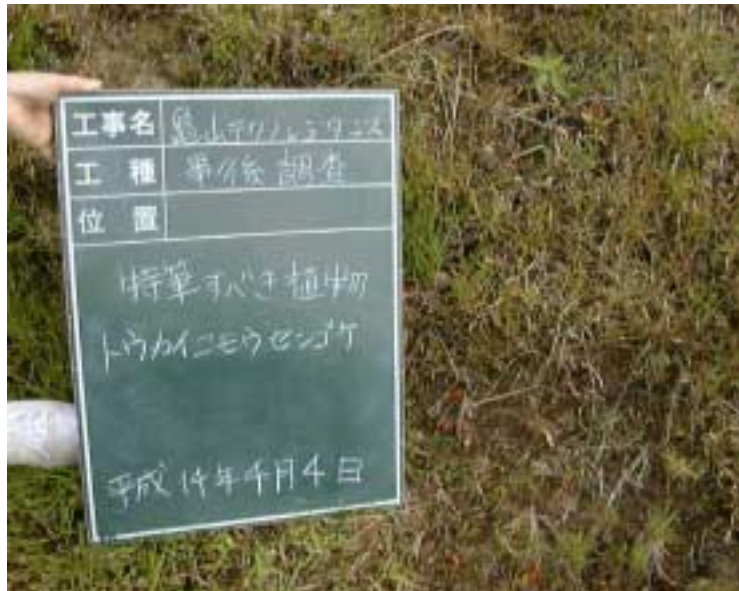 工事名 亀山テクノヒルズ
工種 事後調査
位置
特筆すべき植物
トウカイコモウセンゴケ
平成14年4月4日